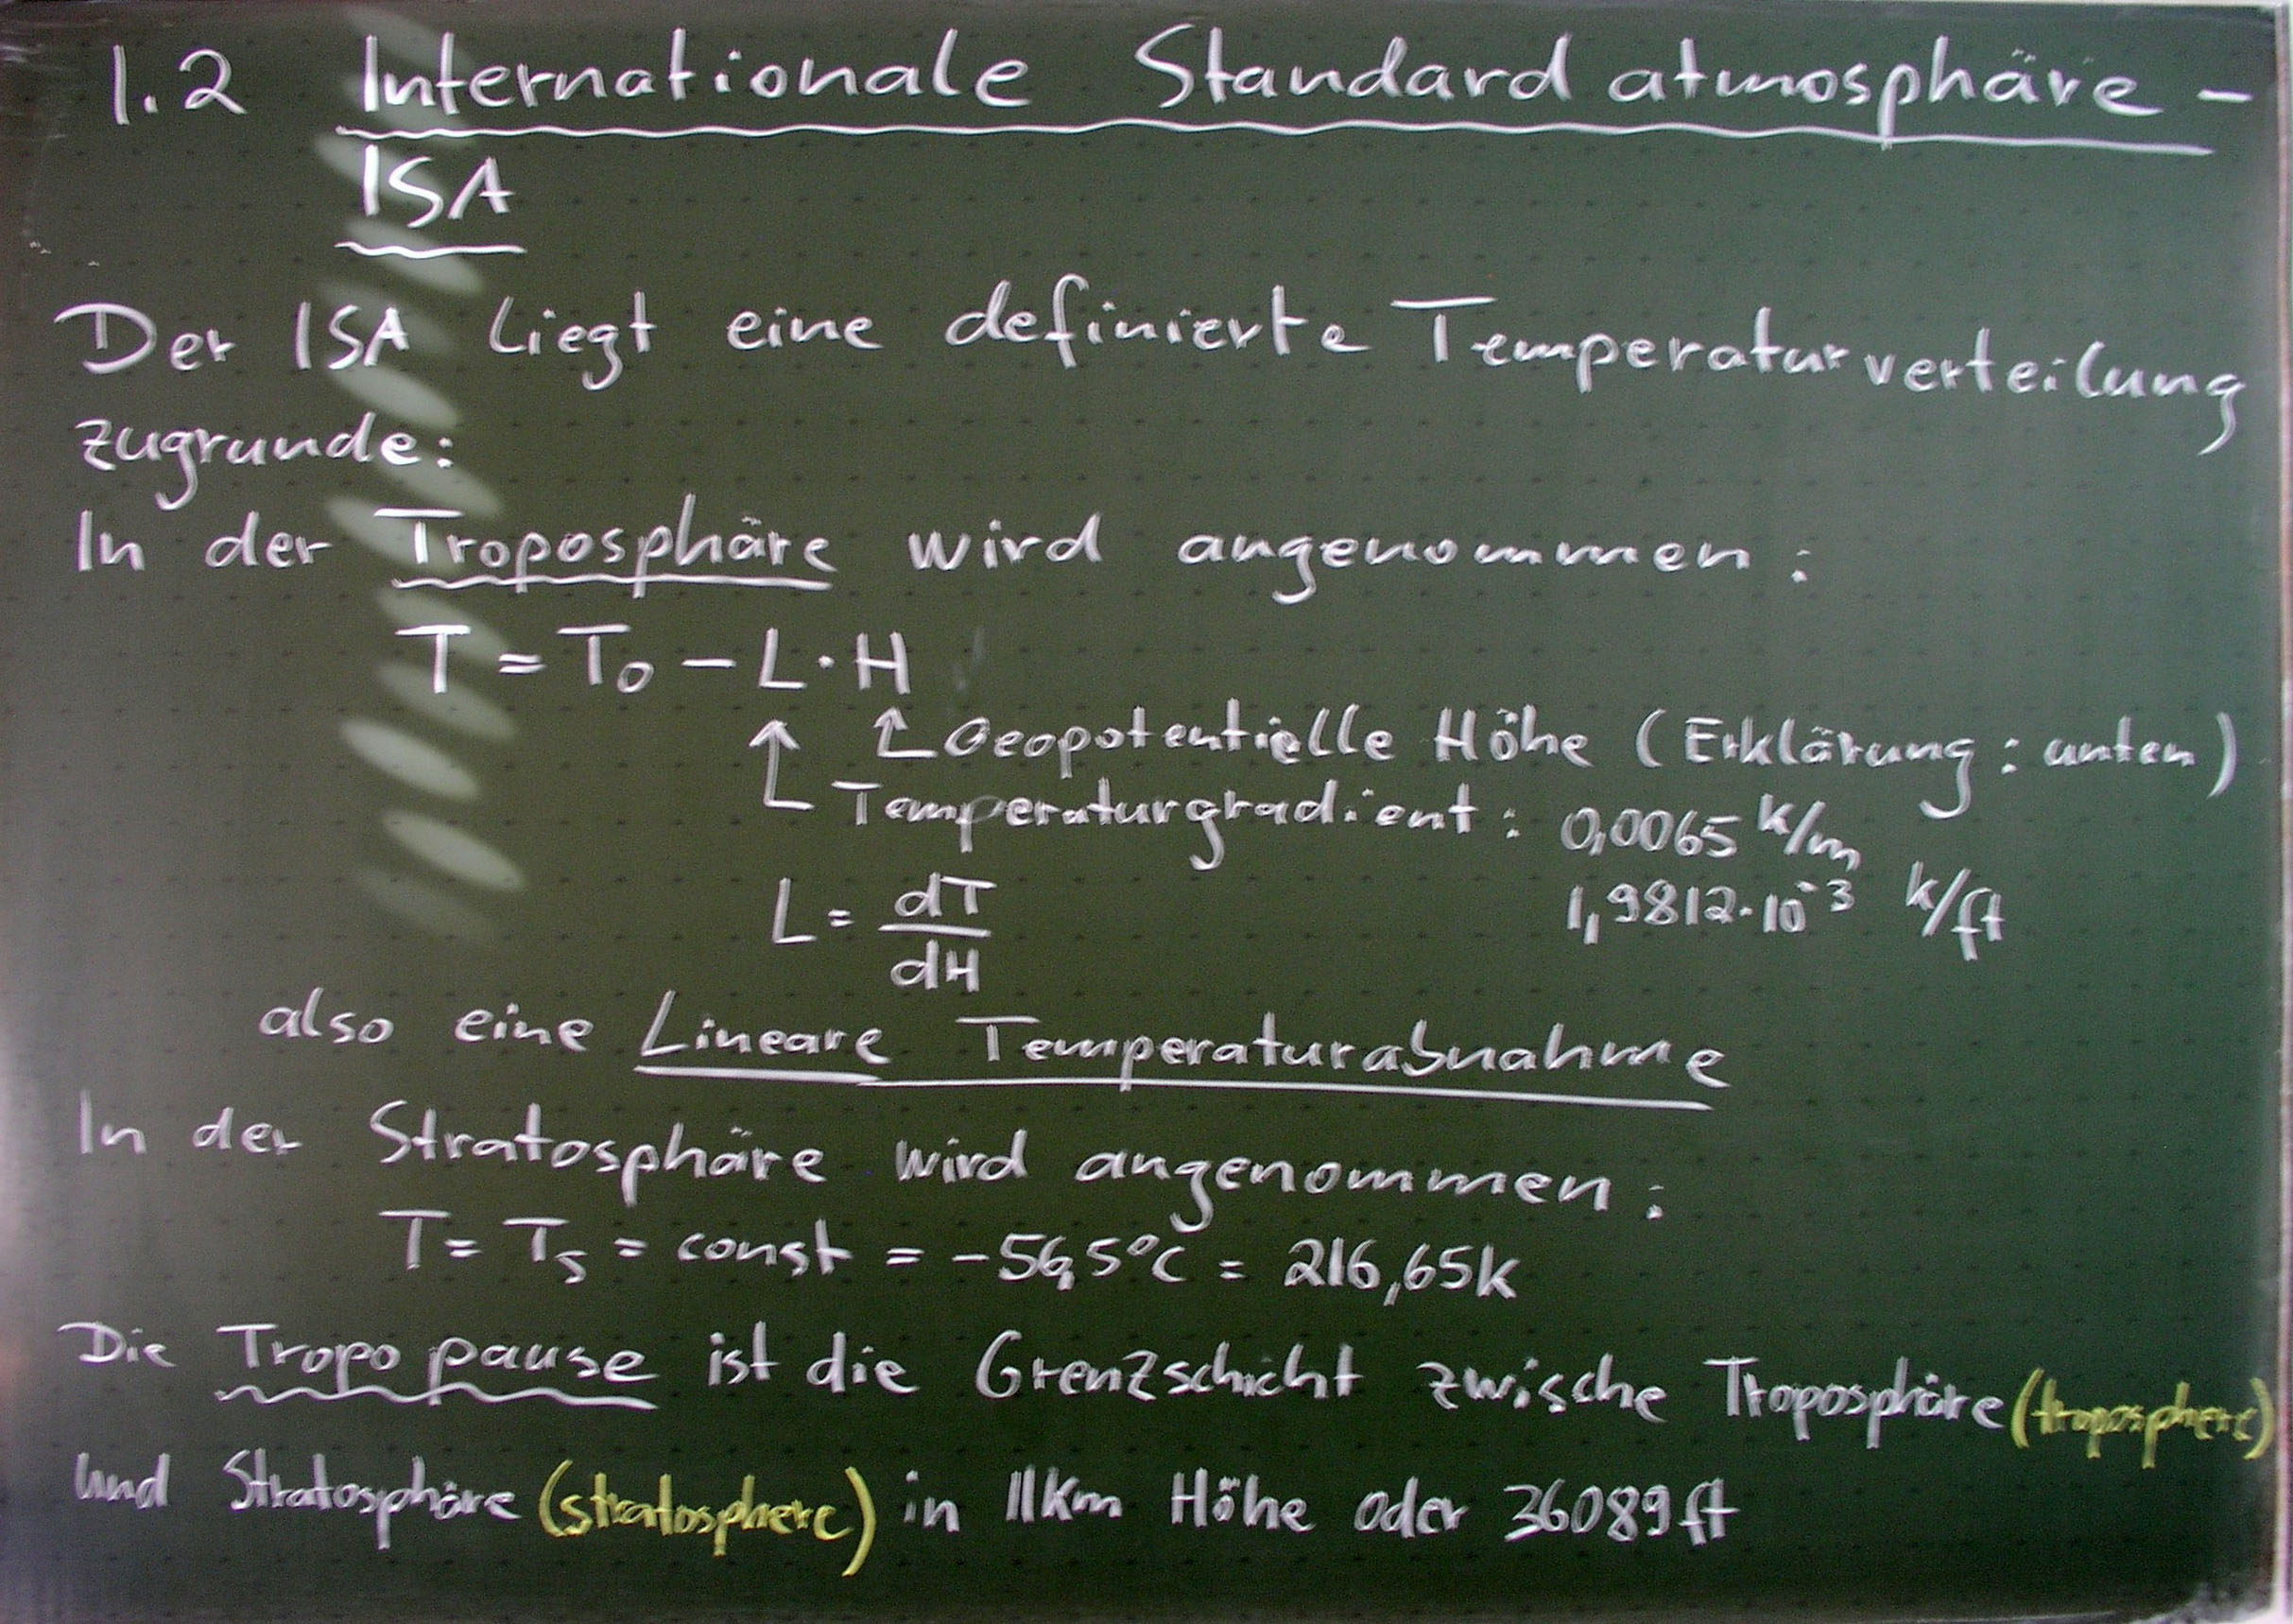 1.2 Internationale Standardatmosphäre -
ISA
Der ISA liegt eine definierte Temperaturverteilung
zugrunde:
In der Troposphäre wird angenommen:
T = T₀ - L · H
Geopotentielle Höhe (Erklärung: unten)
Temperaturgradient: 0,0065 k/m
1,9812·10⁻³ k/ft
L = dT/dH
also eine Lineare Temperaturabnahme
In der Stratosphäre wird angenommen:
T = T_S = const = -56,5°C = 216,65k
Die Tropopause ist die Grenzschicht zwische Troposphäre (troposphere)
und Stratosphäre (stratosphere) in 11km Höhe oder 36089 ft